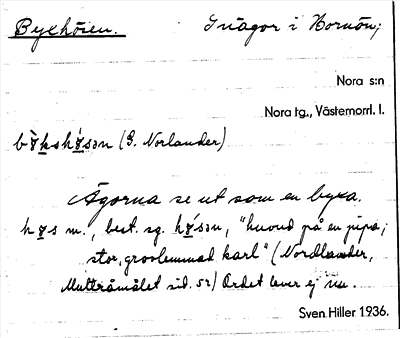 Byxhösen. Inägor i Hornön;
Nora s:n
Nora tg., Västernorrl. l.
(G. Norlander)
Ägorna se ut som en byxa.
m., best. sg. "huvud på en pipa;
stor, groolemmad karl" (Nordlander,
Multråmålet sid. 52) Ordet lever ej nu.
Sven Hiller 1936.